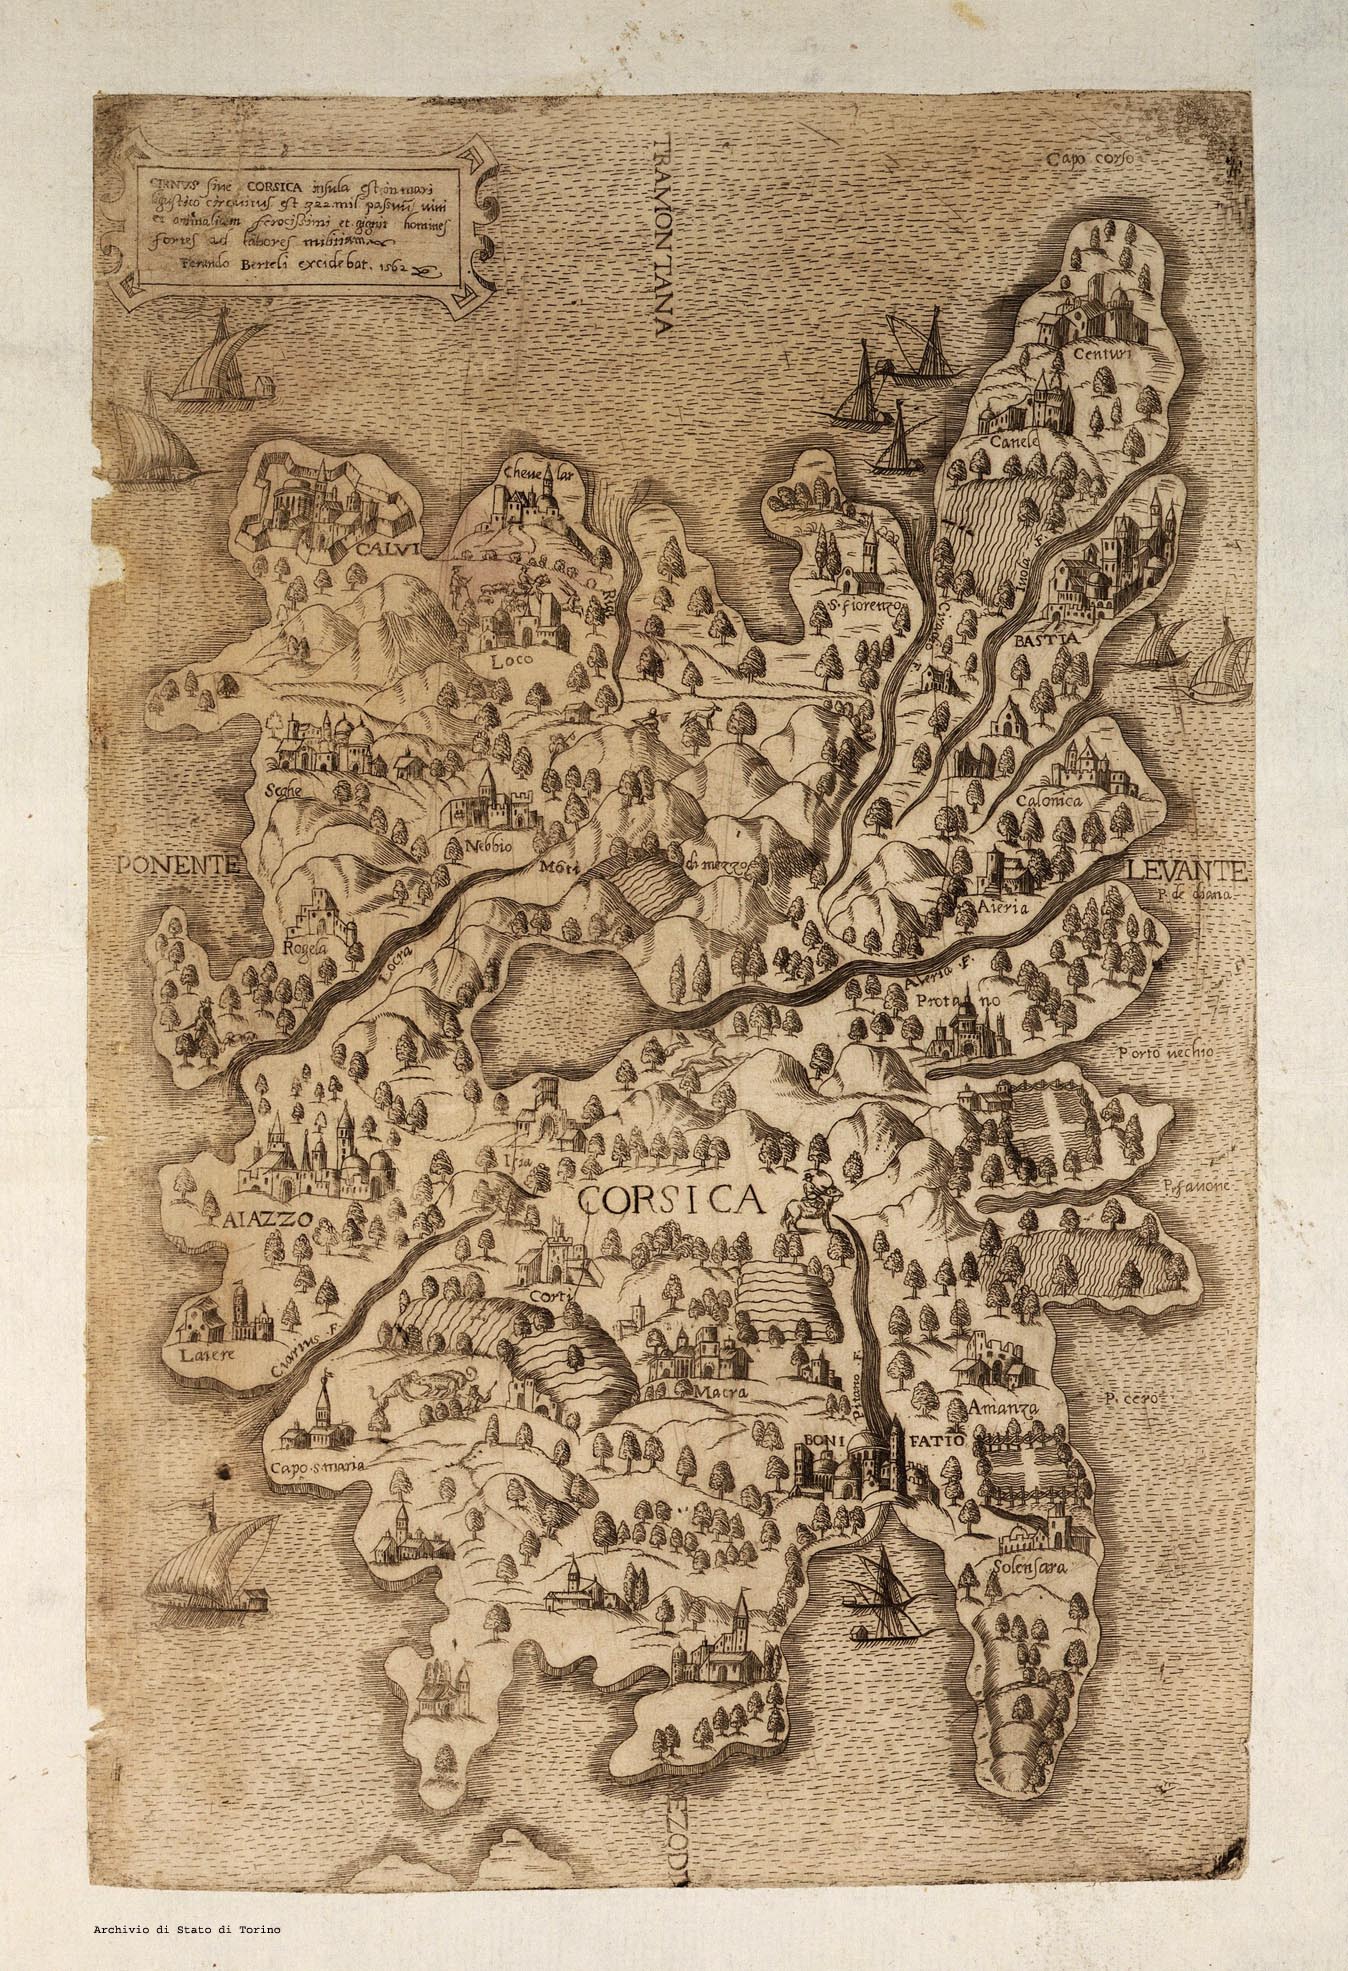 CIRNVS sive CORSICA insula est in mari
ligustico circuitus est 322 mil passuū vini
et animalium ferocissimi et gignit homines
fortes ad labores
Ferando Berteli excidebat. 1562
TRAMONTANA
Capo corso
Centuri
Canele
Cheue lar
CALVI
S. fiorenzo
BASTIA
Loco
Seghe
Calonica
Nebbio
PONENTE
Mōti di mezzo
LEVANTE
P. de diana
Aieria
Rogela
Locra
Aleria F.
Prota no
Porto uechio
P. fauone
CORSICA
AIAZZO
Corti
Latere
Ciarnus F.
Matra
Pitano F.
P. cero
Amanza
BONI FATIO
Capo s maria
Solensara
EZODI
Archivio di Stato di Torino